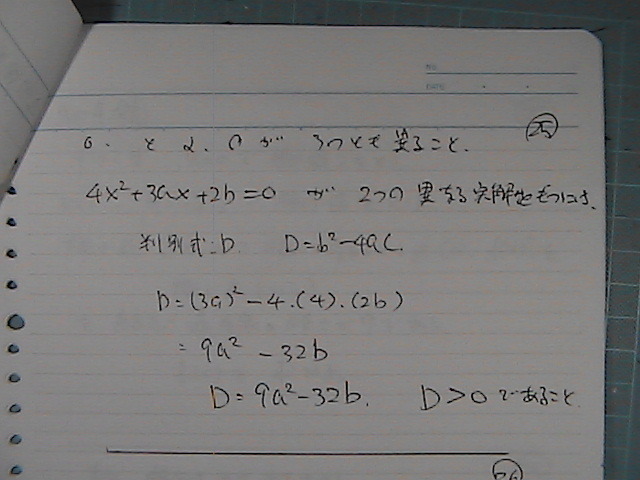 NO.
DATE
25
0. と α. βが 3つとも異ること.
4x²+3ax+2b=0 が 2つの異なる実解をもつには、
判別式:D. D=b²-4ac.
D=(3a)²-4・(4)・(2b)
=9a²-32b
D=9a²-32b. D>0であること.
26